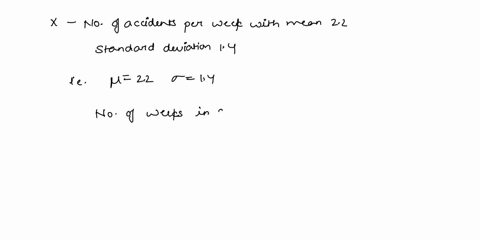 X - No. of accidents per week with mean 2.2
Standard deviation 1.4
i.e. μ = 2.2 σ = 1.4
No. of weeks in